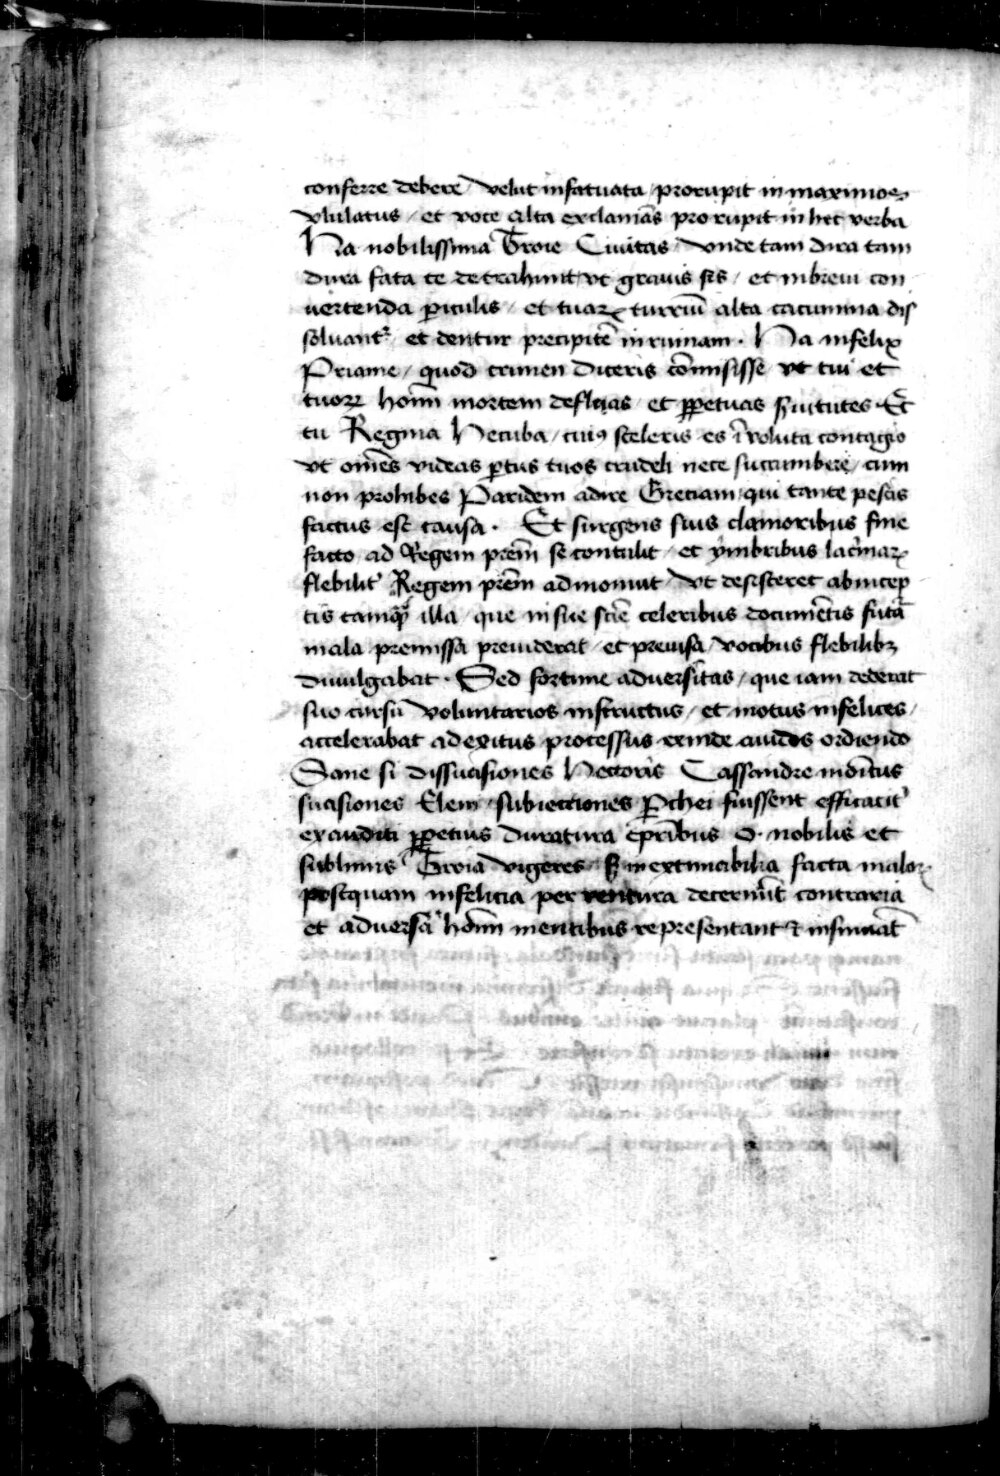 conferre debere / velut infatuata / prorupit in maximos
vlulatus / et voce alta exclamās prorupit in hec verba
Ha nobilissima Troie Ciuitas / vnde tam dira tam
dura fata te detrahunt vt grauis sis / et in breui con
uertenda piculis / et tuaꝝ turriū alta cacumina dis
soluantᷣ / et dentur precipitē in ruinam · Ha infelix
Priame / quod crimen diceris cōmisisse vt tui et
tuoꝝ hoīm mortem defleas / et ꝑpetuas s̄uitutes · Et
tu Regina Hecuba / cuiꝰ sceleris es īvoluta contagio
vt om̄es videas ꝑtus tuos crudeli nece succumbere / cum
non prohibes Paridem adire Greciam / qui tante pestis
factus est causa · Et surgens suis clamoribus fine
facto ad Regem prēm se contulit / et ymbribus lacrimaꝝ
flebilitᷣ Regem prēm admonuit / vt desisteret ab incep
tis tamqᷓ illa / que in sue sciē celeribus documētis futa
mala premissa preuiderat / et preuisa / vocibus flebilibꝫ
diuulgabat · Sed fortune aduersitas / que iam dederat
suo cursū voluntarios instructus / et motus infelices /
accelerabat ad exitus processus exinde auidos ordiendo
Sane si dissuasiones Hectoris Cassandre inditus
suasiones Elem / subiectiones Pthei fuissent efficacitᷣ
exauditi ꝑpetuis duratura tꝑribus O · nobilis et
sublimis Troia vigeres / S̄ inextricabilia facta maloꝝ
postquam infelicia per ventura decernūt contraria
et aduersa hoīm mentibus representant ⁊ insinuāt